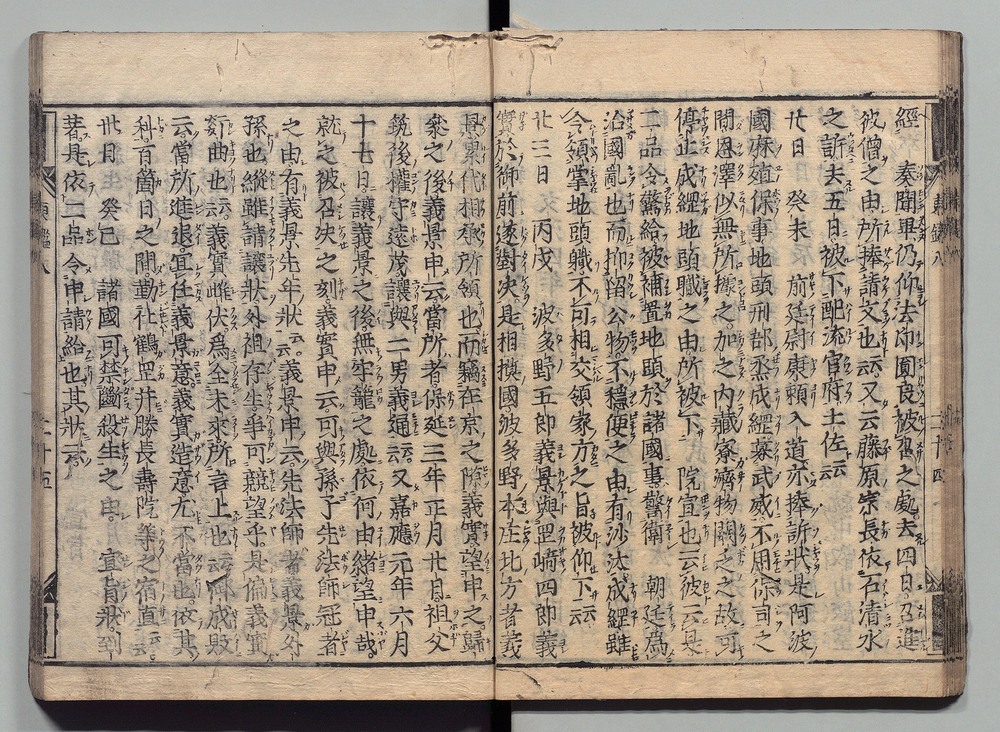 經 奏聞畢仍仰法印圓良被召之處去四日召進
彼僧之由所捧請文也云云又云藤原宗長依石清水
之訴去五日被下配流官府土佐云云
廿日 癸未 前廷尉康頼入道亦捧訴状是阿波
國麻殖保事地頭刑部丞成經募武威不用保司之
間恩澤似無所據之加之内藏寮濟物闕乏之故可
停止成經地頭職之由所被下 院宣也云彼云是
二品令驚給被補置地頭於諸國事警衛 朝廷為
治國亂也而抑留公物不穩便之由有沙汰成經雖
令領掌地頭職不可相交領家方之旨被仰下云云
廿三日 丙戌 波多野五郎義景與岡崎四郎義
實於御前遂對决是相摸國波多野本庄北方者義
景累代相承所領也而騎在京之隙義實望申之歸
參之後義景申云當所者保延三年正月廿日祖父
筑後權守遠茂讓與二男義通云云又嘉應元年六月
十七日讓義景之後無牢籠之處依何由緒望申哉
就之被召决之刻義實申云可與孫子先法師冠者
之由有義景先年状云云義景申云先法師者義景外
孫也縱雖請讓状外祖存生爭可競望乎是偏義實
奸曲也云云義實雌伏為全未來所言上也云云仍成敗
云當所進退宜任義景意義實造意尤不當也依其
科百箇日之間勤社鶴岡并勝長壽院等之宿直云云
卅日 癸巳 諸國可禁斷殺生之由 宣旨状到
著是依二品令申請給也其状云
東鑑八
二十四
東鑑八
二十五